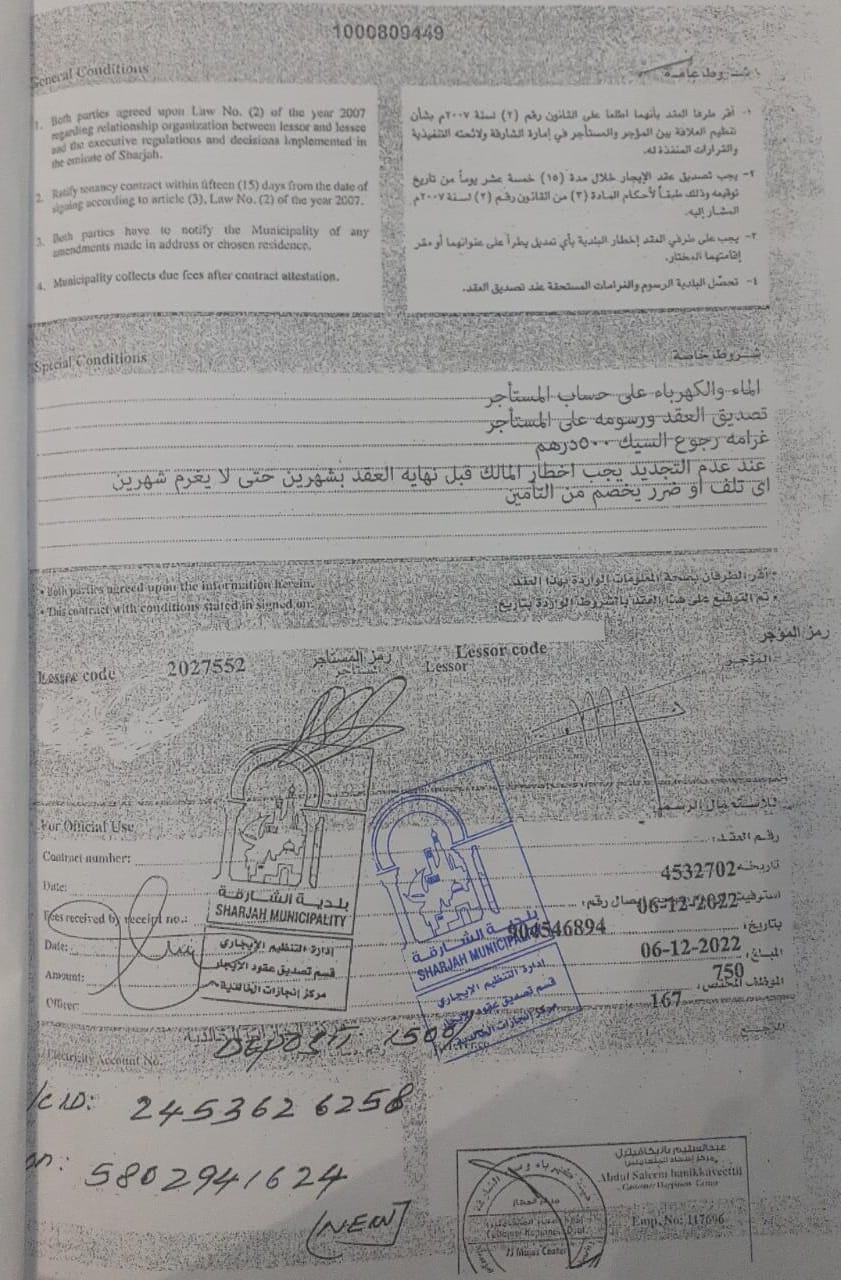 1000809449
General Conditions
شروط عامة
1. Both parties agreed upon Law No. (2) of the year 2007
regarding relationship organization between lessor and lessee
and the executive regulations and decisions implemented in
the emirate of Sharjah.
2. Ratify tenancy contract within fifteen (15) days from the date of
signing according to article (3), Law No. (2) of the year 2007.
3. Both parties have to notify the Municipality of any
amendments made in address or chosen residence.
4. Municipality collects due fees after contract attestation.
١- أقر طرفا العقد بأنهما اطلعا على القانون رقم (٢) لسنة ٢٠٠٧م بشأن
تنظيم العلاقة بين المؤجر والمستأجر في إمارة الشارقة ولائحته التنفيذية
والقرارات المنفذة له.
٢- يجب تصديق عقد الإيجار خلال مدة (١٥) خمسة عشر يوماً من تاريخ
توقيعه وذلك طبقاً لأحكام المادة (٣) من القانون رقم (٢) لسنة ٢٠٠٧م
المشار إليه.
٣- يجب على طرفي العقد إخطار البلدية بأي تعديل يطرأ على عنوانهما أو مقر
إقامتهما المختار.
٤- تحصّل البلدية الرسوم والغرامات المستحقة عند تصديق العقد.
Special Conditions
شروط خاصة
الماء والكهرباء على حساب المستأجر
تصديق العقد ورسومه على المستأجر
غرامه رجوع الشيك ٥٠٠درهم
عند عدم التجديد يجب اخطار المالك قبل نهايه العقد بشهرين حتى لا يغرم شهرين
اي تلف او ضرر يخصم من التأمين
• Both parties agreed upon the information herein.
• This contract with conditions stated in signed on:
• أقر الطرفان بصحة المعلومات الواردة بهذا العقد.
• تم التوقيع على هذا العقد بالشروط الواردة بتاريخ:
Lessee code 2027552 رمز المستأجر
Lessor code رمز المؤجر
Lessor المؤجر
For Official Use
للاستعمال الرسمي
Contract number: رقم العقد:
Date: 4532702 تاريخه
Fees received by receipt no.: 06-12-2022 إيصال رقم:
Date: 904546894 بتاريخ:
Amount: 06-12-2022 المبلغ:
Officer: 750 الموظف المختص:
167
بلدية الشارقة
SHARJAH MUNICIPALITY
إدارة التنظيم الإيجاري
قسم تصديق عقود الإيجار
مركز إنجازات الخالدية
بلدية الشارقة
SHARJAH MUNICIPALITY
إدارة التنظيم الإيجاري
قسم تصديق عقود الإيجار
مركز إنجازات الخالدية
DEPOSIT 1500/
Electricity Account No.
ID: 2453626258
5802941624
(NEW)
Abdul Saleem
Customer Happiness Center
Emp. No: 117696